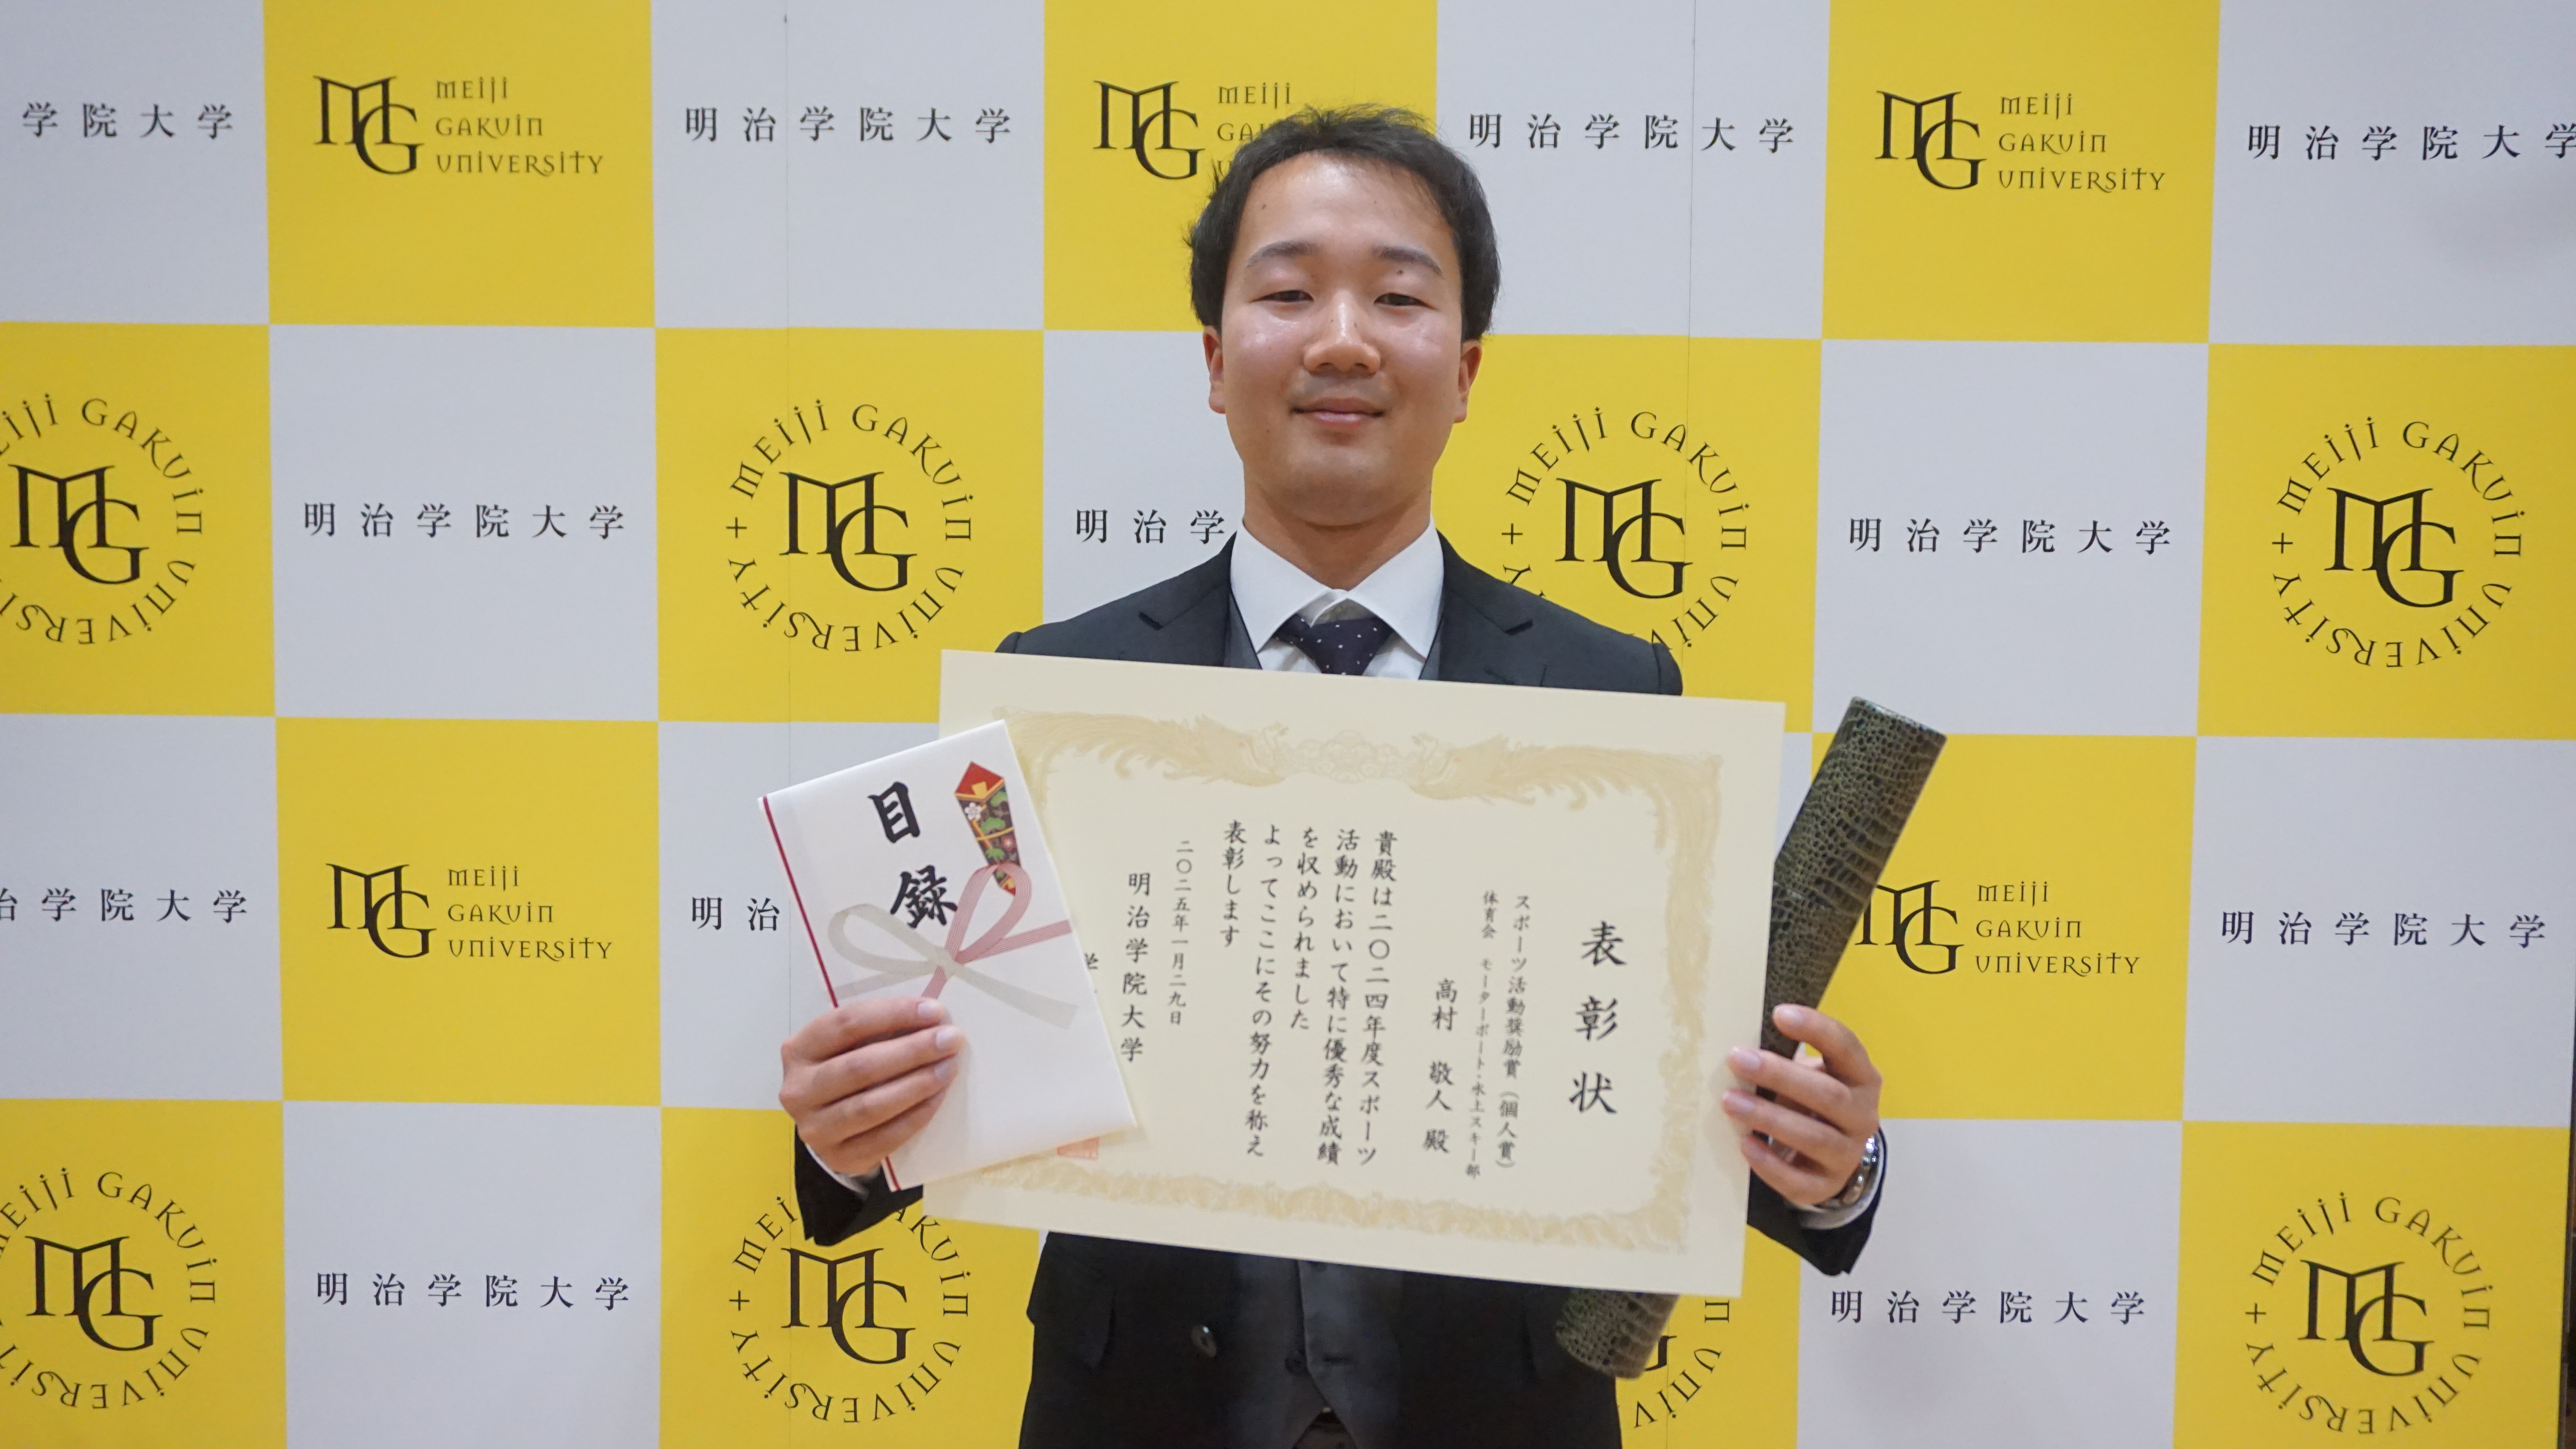 学院大学
MG MEIJI GAKUIN UNIVERSITY
明治学院大学
MG MEIJI
明治学院大学
MG MEIJI GAKUIN UNIVERSITY
明治学院大学
MEIJI GAKUIN UNIVERSITY MG
明治学院大学
MEIJI GAKUIN UNIVERSITY MG
明治学
MEIJI GAKUIN UNIVERSITY MG
明治学院大学
MEIJI GAKUIN UNIVERSITY MG
表彰状
スポーツ活動奨励賞(個人賞)
体育会 モーターボート・水上スキー部
高村 敬人 殿
貴殿は二〇二四年度スポーツ
活動において特に優秀な成績
を収められました
よってここにその努力を称え
表彰します
二〇二五年一月二九日
明治学院大学
学
目録
治学院大学
MG MEIJI GAKUIN UNIVERSITY
明治
MG MEIJI GAKUIN UNIVERSITY
明治学院大学
MEIJI GAKUIN UNIVERSITY MG
明治学院大学
MEIJI GAKUIN UNIVERSITY MG
明治学院大学
MEIJI GAKUIN UNIVERSITY MG